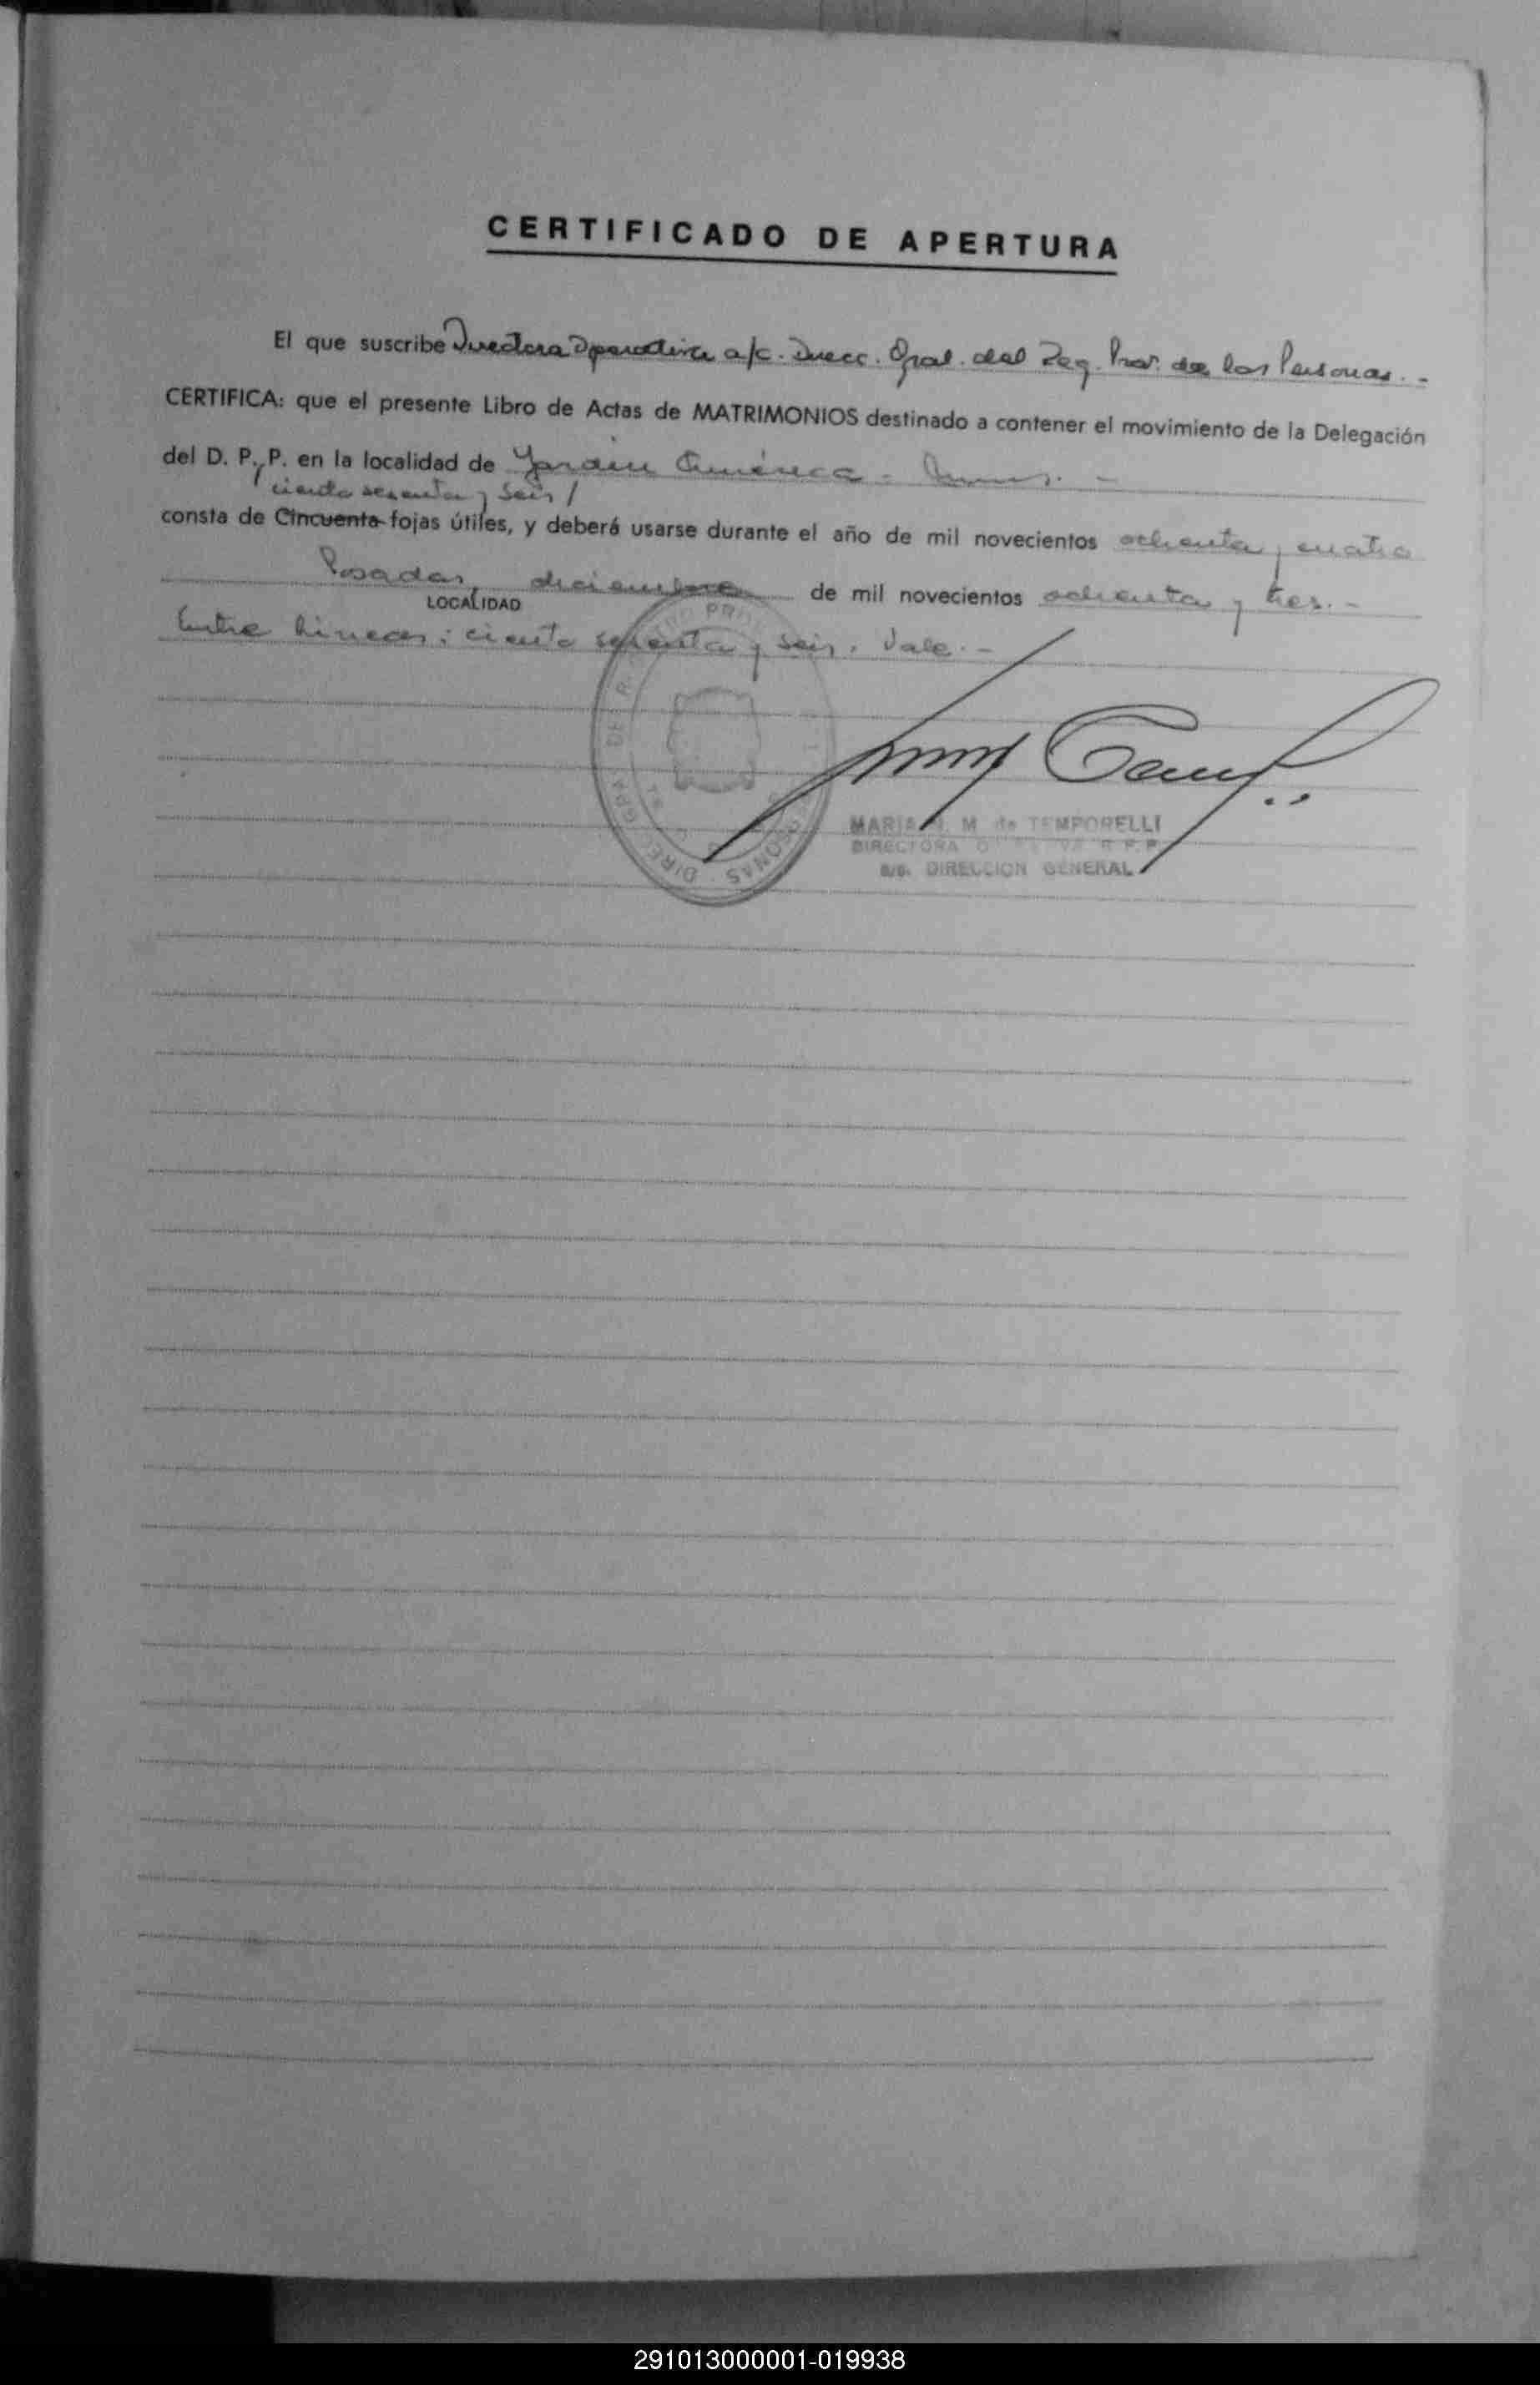 CERTIFICADO DE APERTURA
El que suscribe Directora Operativa a/c. Direcc. Gral. del Reg. Prov. de las Personas. -
CERTIFICA: que el presente Libro de Actas de MATRIMONIOS destinado a contener el movimiento de la Delegación
del D. P. P. en la localidad de Jardín América -
/ ciento sesenta y seis /
consta de Cincuenta fojas útiles, y deberá usarse durante el año de mil novecientos ochenta y cuatro
Posadas, diciembre de mil novecientos ochenta y tres. -
LOCALIDAD
Entre líneas: ciento sesenta y seis. Vale. -
MARIA M. de TEMPORELLI
DIRECTORA R.P.P.
a/c. DIRECCION GENERAL
291013000001-019938